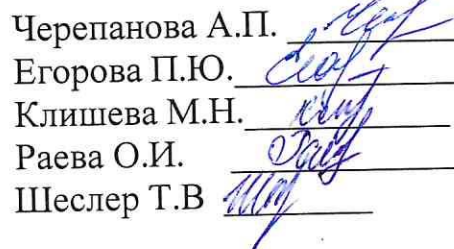 Черепанова А.П.
Егорова П.Ю.
Клишева М.Н.
Раева О.И.
Шеслер Т.В